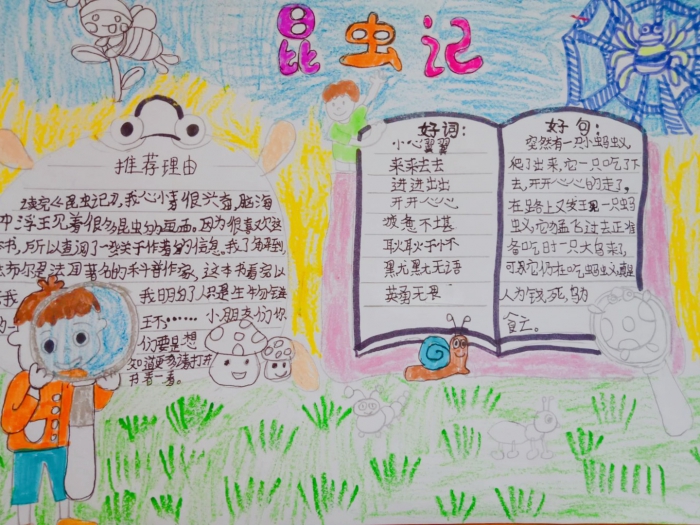 昆虫记
推荐理由
读完《昆虫记》,我心
里很兴奋,脑海
中浮现着很多昆虫的画面。因为很喜欢这
本书,所以查阅了一些关于作者的信息。我了解到
法布尔是法国著名的科普作家,这本书看完以
我明白了人只是生物链
小朋友们你
们要是想
知道更多请打开
书看一看。
好词:
小心翼翼
来来去去
进进出出
开开心心
疲惫不堪
耿耿于怀
默默无语
英勇无畏
好句:
突然有一只小蚂蚁
爬了出来,它一只吃了下
去,开开心心的走了,
在路上又发现一只蚂
蚁,它猛飞过去正准
备吃时一只大鸟来了,
人为钱死,鸟为
食亡。